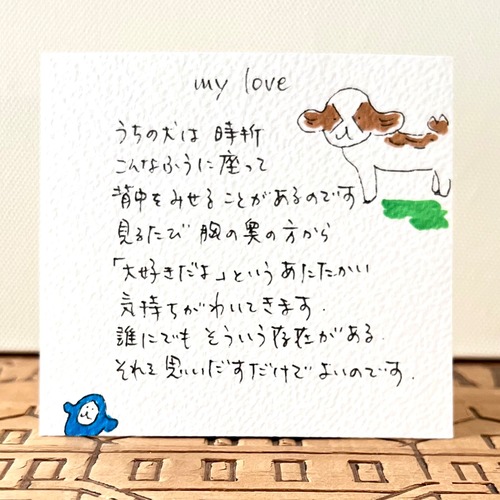 my love
うちの犬は 時折
こんなふうに座って
背中をみせることがあるのです
見るたび 胸の奥の方から
「大好きだよ」という あたたかい
気持ちがわいてきます.
誰にでも そういう存在がある.
それを 思いだすだけで よいのです.